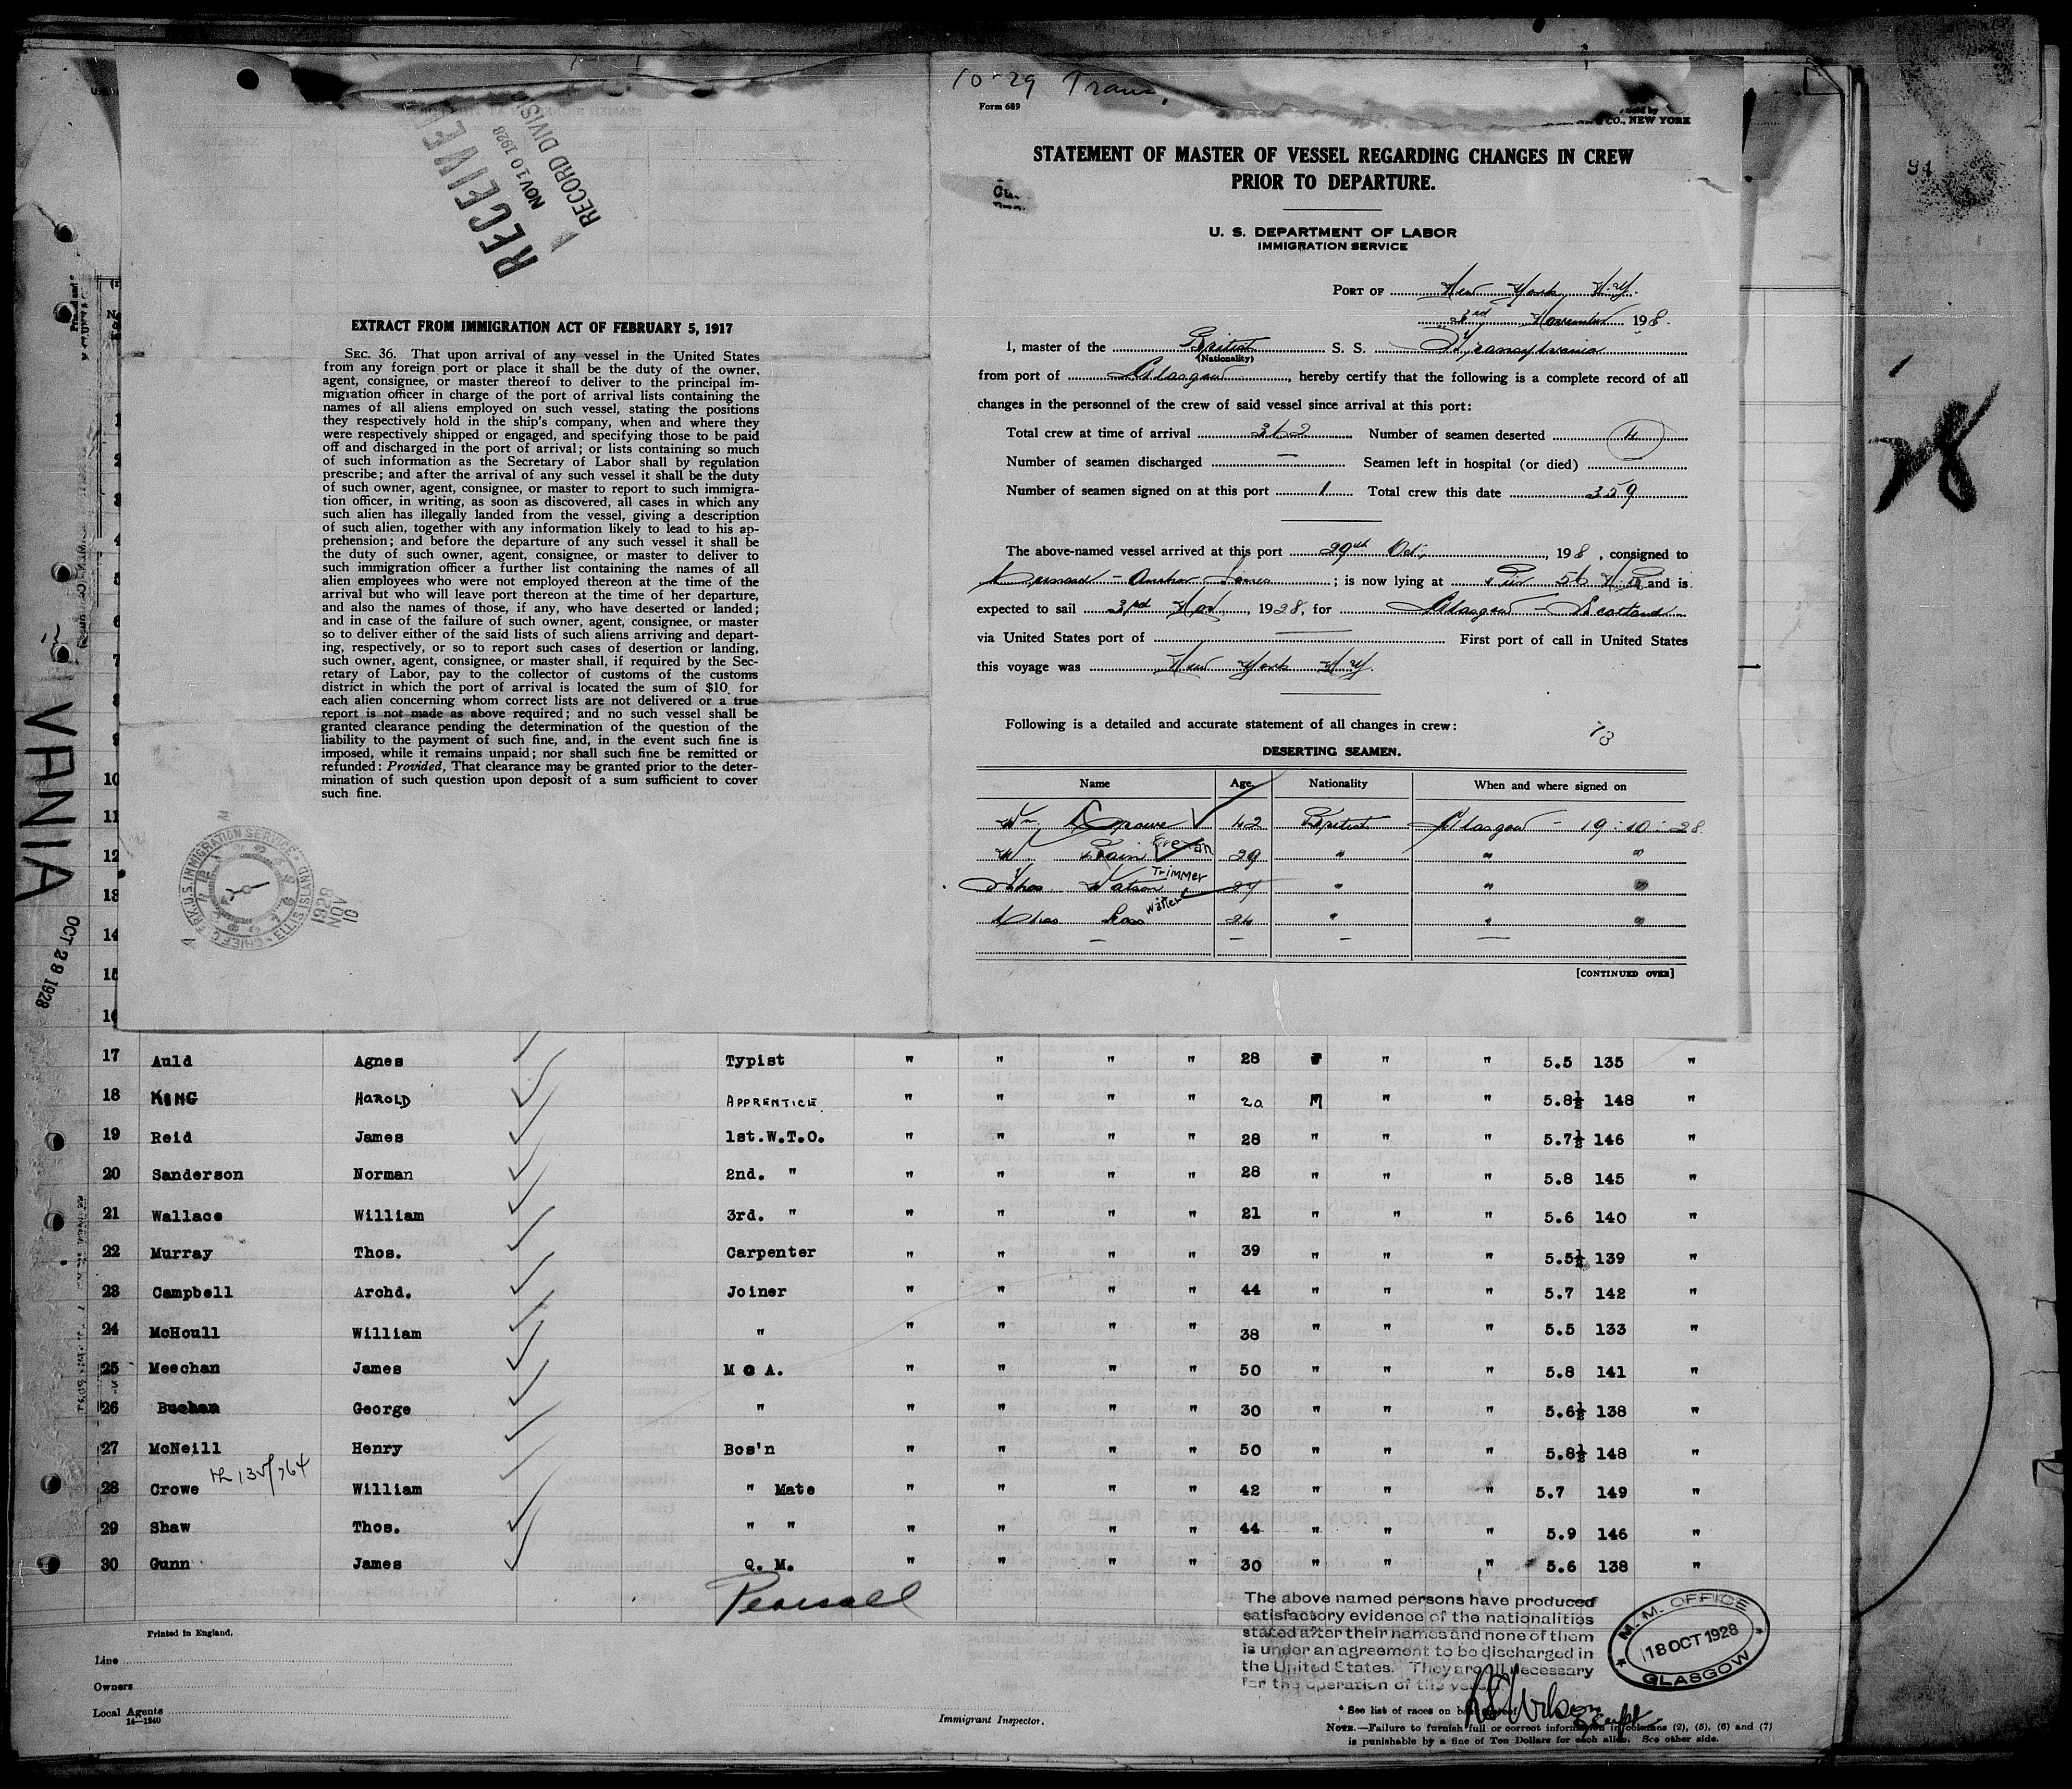 RECEIVED
NOV 10 1928
RECORD DIVISION
EXTRACT FROM IMMIGRATION ACT OF FEBRUARY 5, 1917
SEC. 36. That upon arrival of any vessel in the United States
from any foreign port or place it shall be the duty of the owner,
agent, consignee, or master thereof to deliver to the principal im-
migration officer in charge of the port of arrival lists containing the
names of all aliens employed on such vessel, stating the positions
they respectively hold in the ship's company, when and where they
were respectively shipped or engaged, and specifying those to be paid
off and discharged in the port of arrival; or lists containing so much
of such information as the Secretary of Labor shall by regulation
prescribe; and after the arrival of any such vessel it shall be the duty
of such owner, agent, consignee, or master to report to such immigra-
tion officer, in writing, as soon as discovered, all cases in which any
such alien has illegally landed from the vessel, giving a description
of such alien, together with any information likely to lead to his ap-
prehension; and before the departure of any such vessel it shall be
the duty of such owner, agent, consignee, or master to deliver to
such immigration officer a further list containing the names of all
alien employees who were not employed thereon at the time of the
arrival but who will leave port thereon at the time of her departure,
and also the names of those, if any, who have deserted or landed;
and in case of the failure of such owner, agent, consignee, or master
so to deliver either of the said lists of such aliens arriving and depart-
ing, respectively, or so to report such cases of desertion or landing,
such owner, agent, consignee, or master shall, if required by the Sec-
retary of Labor, pay to the collector of customs of the customs
district in which the port of arrival is located the sum of $10 for
each alien concerning whom correct lists are not delivered or a true
report is not made as above required; and no such vessel shall be
granted clearance pending the determination of the question of the
liability to the payment of such fine, and, in the event such fine is
imposed, while it remains unpaid; nor shall such fine be remitted or
refunded: Provided, That clearance may be granted prior to the deter-
mination of such question upon deposit of a sum sufficient to cover
such fine.
U.S. IMMIGRATION SERVICE
ELLIS ISLAND
1928 NOV 10
10-29 Trans.
Form 689
CO., NEW YORK
STATEMENT OF MASTER OF VESSEL REGARDING CHANGES IN CREW
PRIOR TO DEPARTURE.
U. S. DEPARTMENT OF LABOR
IMMIGRATION SERVICE
PORT OF New York N.Y.
3rd November 198.
I, master of the British S. S. Transylvania
(Nationality)
from port of Glasgow, hereby certify that the following is a complete record of all
changes in the personnel of the crew of said vessel since arrival at this port:
Total crew at time of arrival 362 Number of seamen deserted 4
Number of seamen discharged — Seamen left in hospital (or died)
Number of seamen signed on at this port 1 Total crew this date 359
The above-named vessel arrived at this port 29th Oct., 198, consigned to
Cunard - Anchor Lines; is now lying at Pier 56 N.R. and is
expected to sail 3rd Nov, 1928, for Glasgow - Scotland
via United States port of — First port of call in United States
this voyage was New York N.Y.
Following is a detailed and accurate statement of all changes in crew:
73
DESERTING SEAMEN.
Name Age. Nationality When and where signed on
Wm. Crowe 42 British Glasgow - 19:10:28
W. Bain Fireman 29 " " "
Thos Watson Trimmer 27 " " "
Chas Ross Waiter 24 " " "
— — — —
[CONTINUED OVER]
94
28
VANIA
OCT 29 1928
10
11
12
13
14
15
16
17 Auld Agnes Typist " " " " 28 F " " 5.5 135 "
18 KING HAROLD APPRENTICE. " " " " 20 M " " 5.8½ 148 "
19 Reid James 1st.W.T.O. " " " " 28 " " " 5.7½ 146 "
20 Sanderson Norman 2nd. " " " " " 28 " " " 5.8 145 "
21 Wallace William 3rd. " " " " " 21 " " " 5.6 140 "
22 Murray Thos. Carpenter " " " " 39 " " " 5.5½ 139 "
23 Campbell Archd. Joiner " " " " 44 " " " 5.7 142 "
24 McHoull William " " " " " 38 " " " 5.5 133 "
25 Meechan James M @ A. " " " " 50 " " " 5.8 141 "
26 Buchan George " " " " " 30 " " " 5.6½ 138 "
27 McNeill Henry Bos'n " " " " 50 " " " 5.8½ 148 "
28 Crowe William " Mate " " " " 42 " " " 5.7 149 "
29 Shaw Thos. " " " " " " 44 " " " 5.9 146 "
30 Gunn James Q. M. " " " " 30 " " " 5.6 138 "
Printed in England.
Line
Owners
Local Agents
14—1240
Immigrant Inspector.
The above named persons have produced
satisfactory evidence of the nationalities
stated after their names and none of them
is under an agreement to be discharged in
the United States. They are all necessary
for the operation of the vessel.
M. M. OFFICE
18 OCT 1928
GLASGOW
* See list of races on back hereof.
NOTE.—Failure to furnish full or correct information in columns (2), (5), (6) and (7)
is punishable by a fine of Ten Dollars for each alien. See other side.